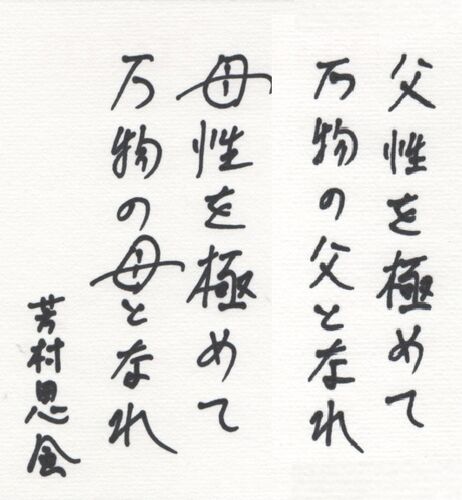 父性を極めて
万物の父となれ
母性を極めて
万物の母となれ
芳村思風